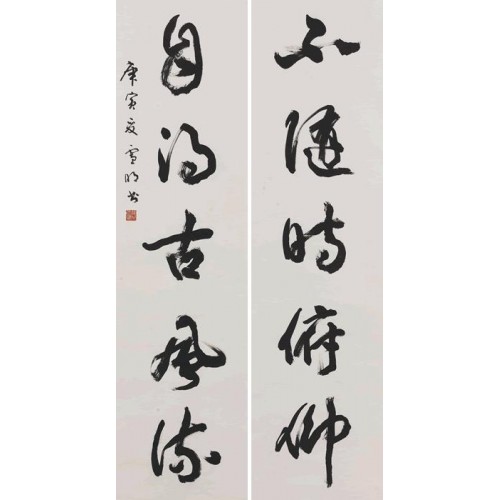 不随时俯仰
自得古风流
庚寅夏雪明书